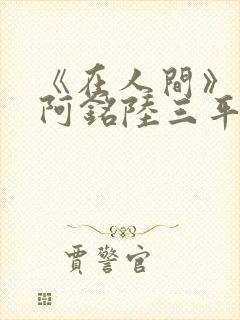 《在人間》
阿銘陸三年
賈警官